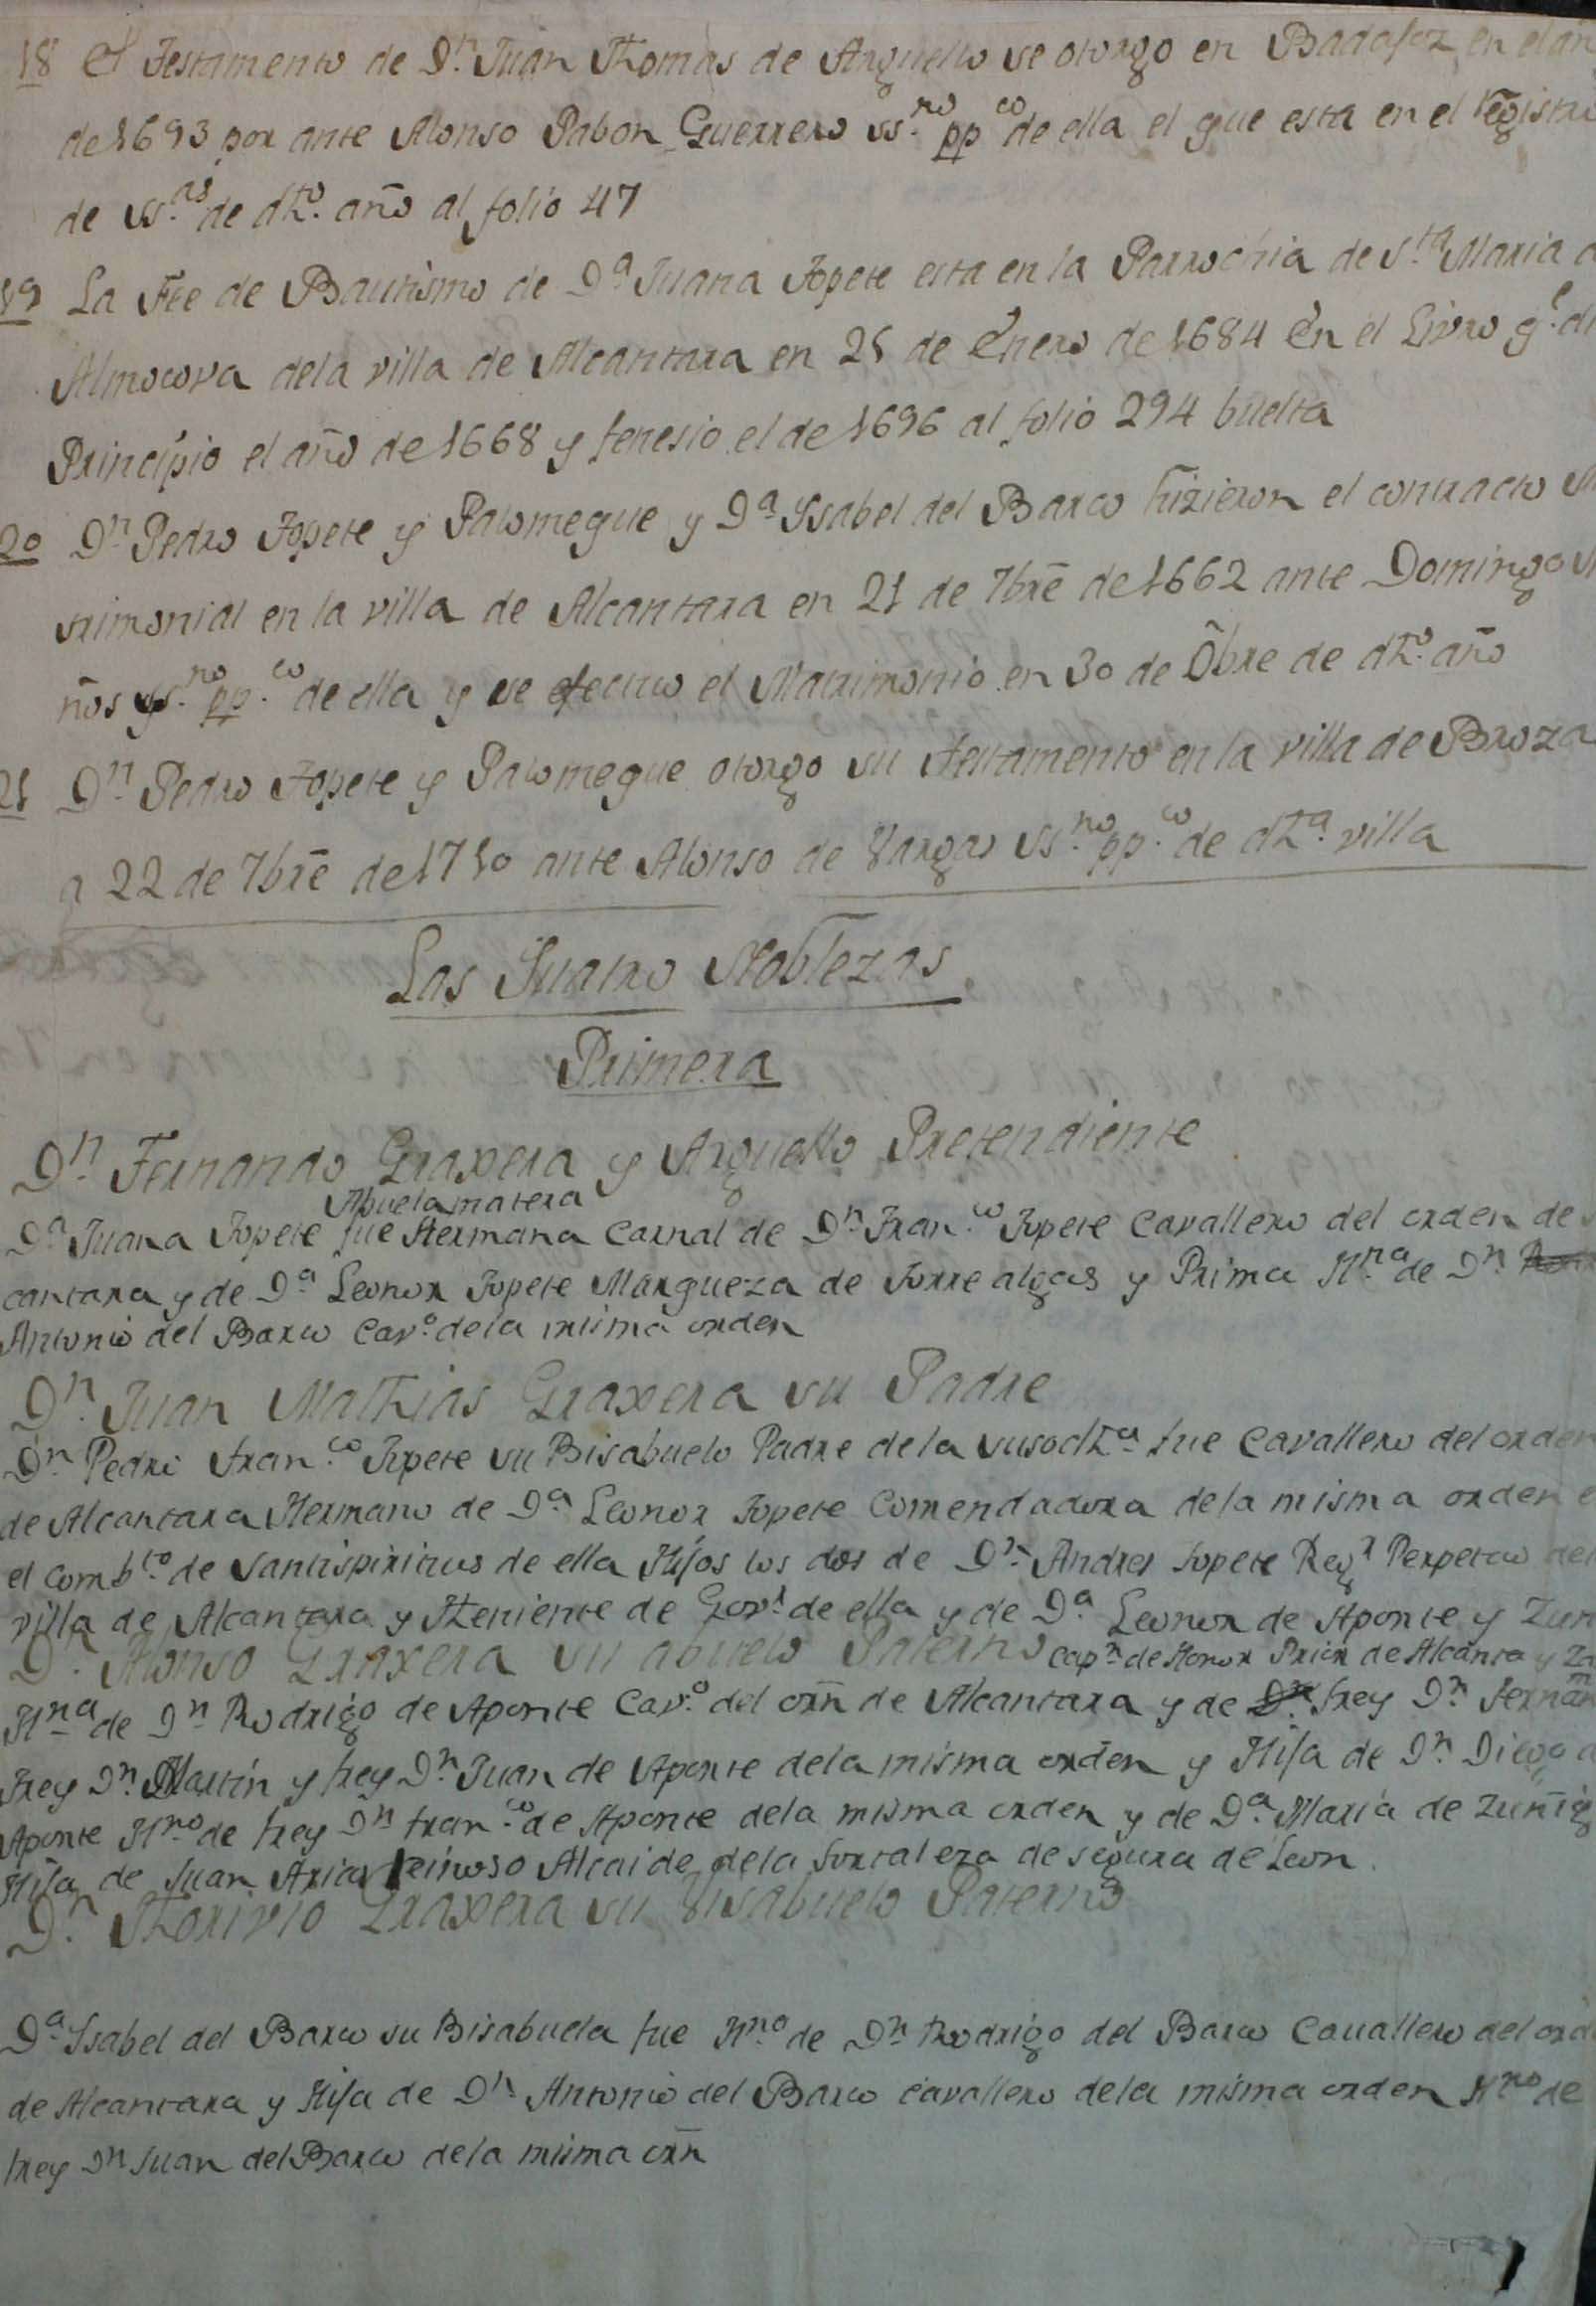 18 El Testamento de Dn. Juan Thomas de Arguello se otorgo en Badajoz en el añ
de 1693 por ante Alonso Pabon Guerrero ss.no pp.co de ella el que esta en el registro
de ss.as de dho. año al folio 47
19 La Fee de Bautismo de Da. Juana Topete esta en la Parrochia de Sta. Maria d
Almocova dela villa de Alcantara en 21 de Enero de 1684 En el Livro g.l
Principio el año de 1668 y fenesio el de 1696 al folio 294 buelta
20 Dn. Pedro Topete y Palomeque y Da. Ysabel del Barco hizieron el contracto
trimonial en la villa de Alcantara en 21 de 7bre de 1662 ante Domingo
ños ss.no pp.co de ella y se efectuo el Matrimonio en 30 de 8bre de dho. año
21 Dn. Pedro Topete y Palomeque otorgo su testamento en la villa de Broza
a 22 de 7bre de 1710 ante Alonso de Vargas ss.no pp.co de dha. villa
Las Quatro Noblezas
Primera
Dn. Fernando Graxera y Arguello Pretendiente
Abuela matera
Da. Juana Topete fue Hermana Carnal de Dn. Fran.co Topete Cavallero del orden de
cantara y de Da. Leonor Topete Marqueza de Torre algas y Prima Hna. de Dn.
Antonio del Barco Cavo. dela misma orden
Dn. Juan Mathias Graxera su Padre
Dn. Pedro Fran.co Topete su Bisabuelo Padre dela susodha fue Cavallero del orden
de Alcantara Hermano de Da. Leonor Topete Comendadora dela misma orden e
el Combto. de Santispiritus de ella Hijos los dos de Dn. Andres Topete Regr. Perpetuo del
villa de Alcantara y Theniente de Govr. de ella y de Da. Leonor de Aponte y Zuñ
Dn. Alonso Graxera su abuelo Paterno
Capn. de Honor Prior de Alcanta y Za
Hna. de Dn. Rodrigo de Aponte Cavo. del orn de Alcantara y de frey Dn. Fernan
frey Dn. Martin y frey Dn. Juan de Aponte dela misma orden y Hija de Dn. Diego d
Aponte Hno. de frey Dn. fran.co de Aponte dela misma orden y de Da. Maria de Zuñig
Hija de Juan Arias Reinoso Alcaide dela fortaleza de segura de Leon.
Dn. Thorivio Graxera su Visabuelo Paterno
Da. Ysabel del Barco su Bisabuela fue Hna. de Dn. Rodrigo del Barco Cauallero del ord
de Alcantara y Hija de Dn. Antonio del Barco Cavallero dela misma orden Hno. de
frey Dn. Juan del Barco dela misma orn